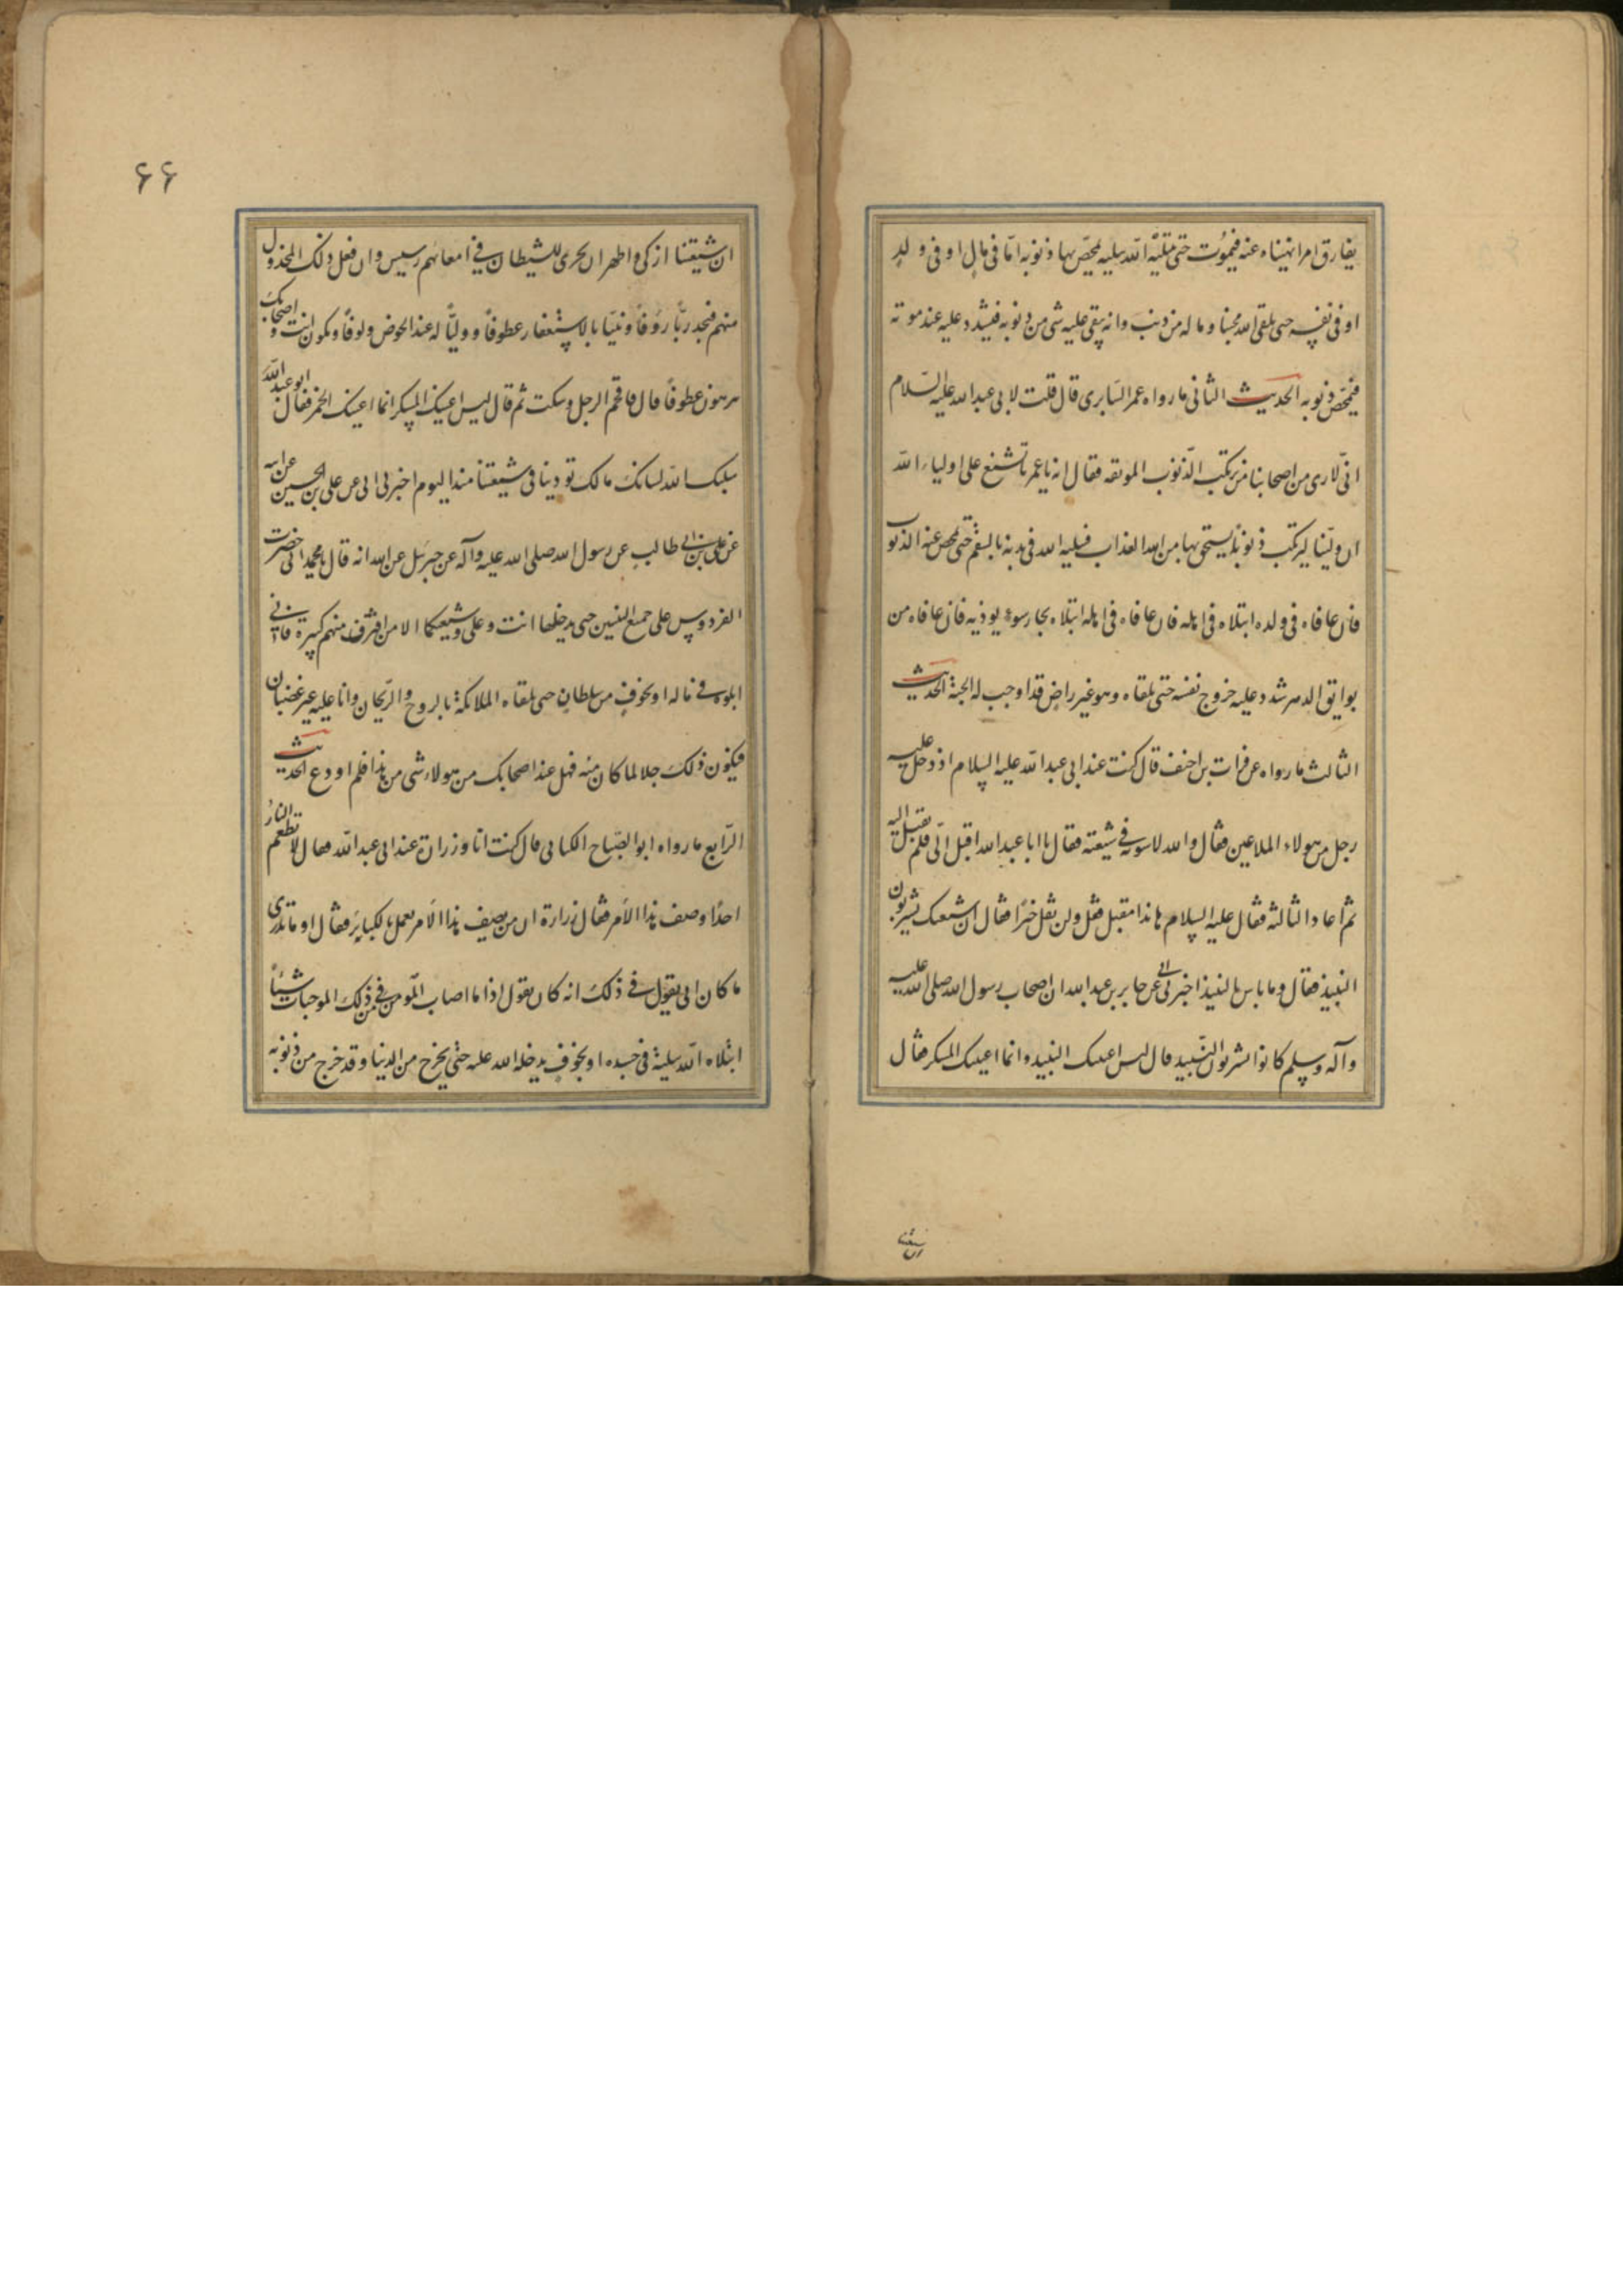 يفارق امرا نهيناه عنه فيموت حتى يبتليه الله ببليه تمحص بها ذنوبه اما فى مال او فى ولد
او فى نفسه حتى يلقى الله محبنا وما له من ذنب وانه يبقى عليه شى من ذنوبه فيشدد عليه عند موته
فيمحص ذنوبه الحديث الثانى ما رواه عمر السابرى قال قلت لابى عبد الله عليه السلام
انى لارى من اصحابنا من يرتكب الذنوب الموبقه فقال انه يا عمر لا تشنع على اولياء الله
ان ولينا ليرتكب ذنوبا يستحق بها من الله العذاب فيبليه الله فى بدنه بالسقم حتى تمحص عنه الذنوب
فان عافاه فى ولده ابتلاه فى اهله فان عافاه فى اهله ابتلاه بجار سوء يوذيه فان عافاه من
بوايق الدهر شدد عليه خروج نفسه حتى يلقاه وهو غير راض قد اوجب له الجنة الحديث
الثالث ما رواه عن فرات بن احنف قال كنت عند ابى عبد الله عليه السلام اذ دخل عليه
رجل من هولاء الملاعين فقال والله لاسونه فى شيعته فقال يا ابا عبد الله اقبل الى فلم يقبل اليه
ثم اعاد الثالثه فقال عليه السلام ها نذا مقبل فقل ولن تقل خيرا فقال ان شيعتك يشربون
النبيذ فقال وما باس بالنبيذ اخبرنى ابى عن جابر بن عبد الله ان اصحاب رسول الله صلى الله عليه
وآله وسلم كانوا يشربون النبيذ قال ليس اعنيك النبيذ وانما اعنيك المسكر فقال
ان شيعتنا
۶۶
ان شيعتنا ازكى واطهر ان يجرى للشيطان فى امعائهم رسيس وان فعل ذلك المخذول
منهم فيجد ربا رؤفا ونبيا بالاستغفار عطوفا ووليا له عند الحوض ولوفا وتكون انت واصحابك
عطوفا قال فافحم الرجل وسكت ثم قال ليس اعنيك المسكر انما اعنيك الخمر فقال ابو عبد الله
سلبك الله لسانك مالك توذينا فى شيعتنا منذ اليوم اخبرنى ابى عن على بن الحسين عن ابيه
عن على بن ابى طالب عن رسول الله صلى الله عليه وآله عن جبرئيل عن الله انه قال يا محمد انى حضرت
الفردوس على جميع النبيين حتى يدخلها انت وعلى وشيعتكما الا من اقترف منهم كبيرة فانى
ابلوه فى ماله او بخوف من سلطان حتى تلقاه الملائكة بالروح والريحان وانا عليه غير غضبان
فيكون ذلك جلا لما كان منه فهل عند اصحابك من هولاء شى من هذا فلم او دع الحديث
الرابع ما رواه ابو الصباح الكنانى قال كنت انا وزرارة عند ابى عبد الله فقال لا تطعم النار
احدا وصف هذا الامر فقال زرارة ان من يصف هذا الامر يعمل بالكباير فقال او ما تدرى
ما كان ابى يقول فى ذلك انه كان يقول اذا ما اصاب المومن من ذلك الموجبات شيئا
ابتلاه الله ببلية فى جسده او بخوف يدخله الله عليه حتى يخرج من الدنيا وقد خرج من ذنوبه